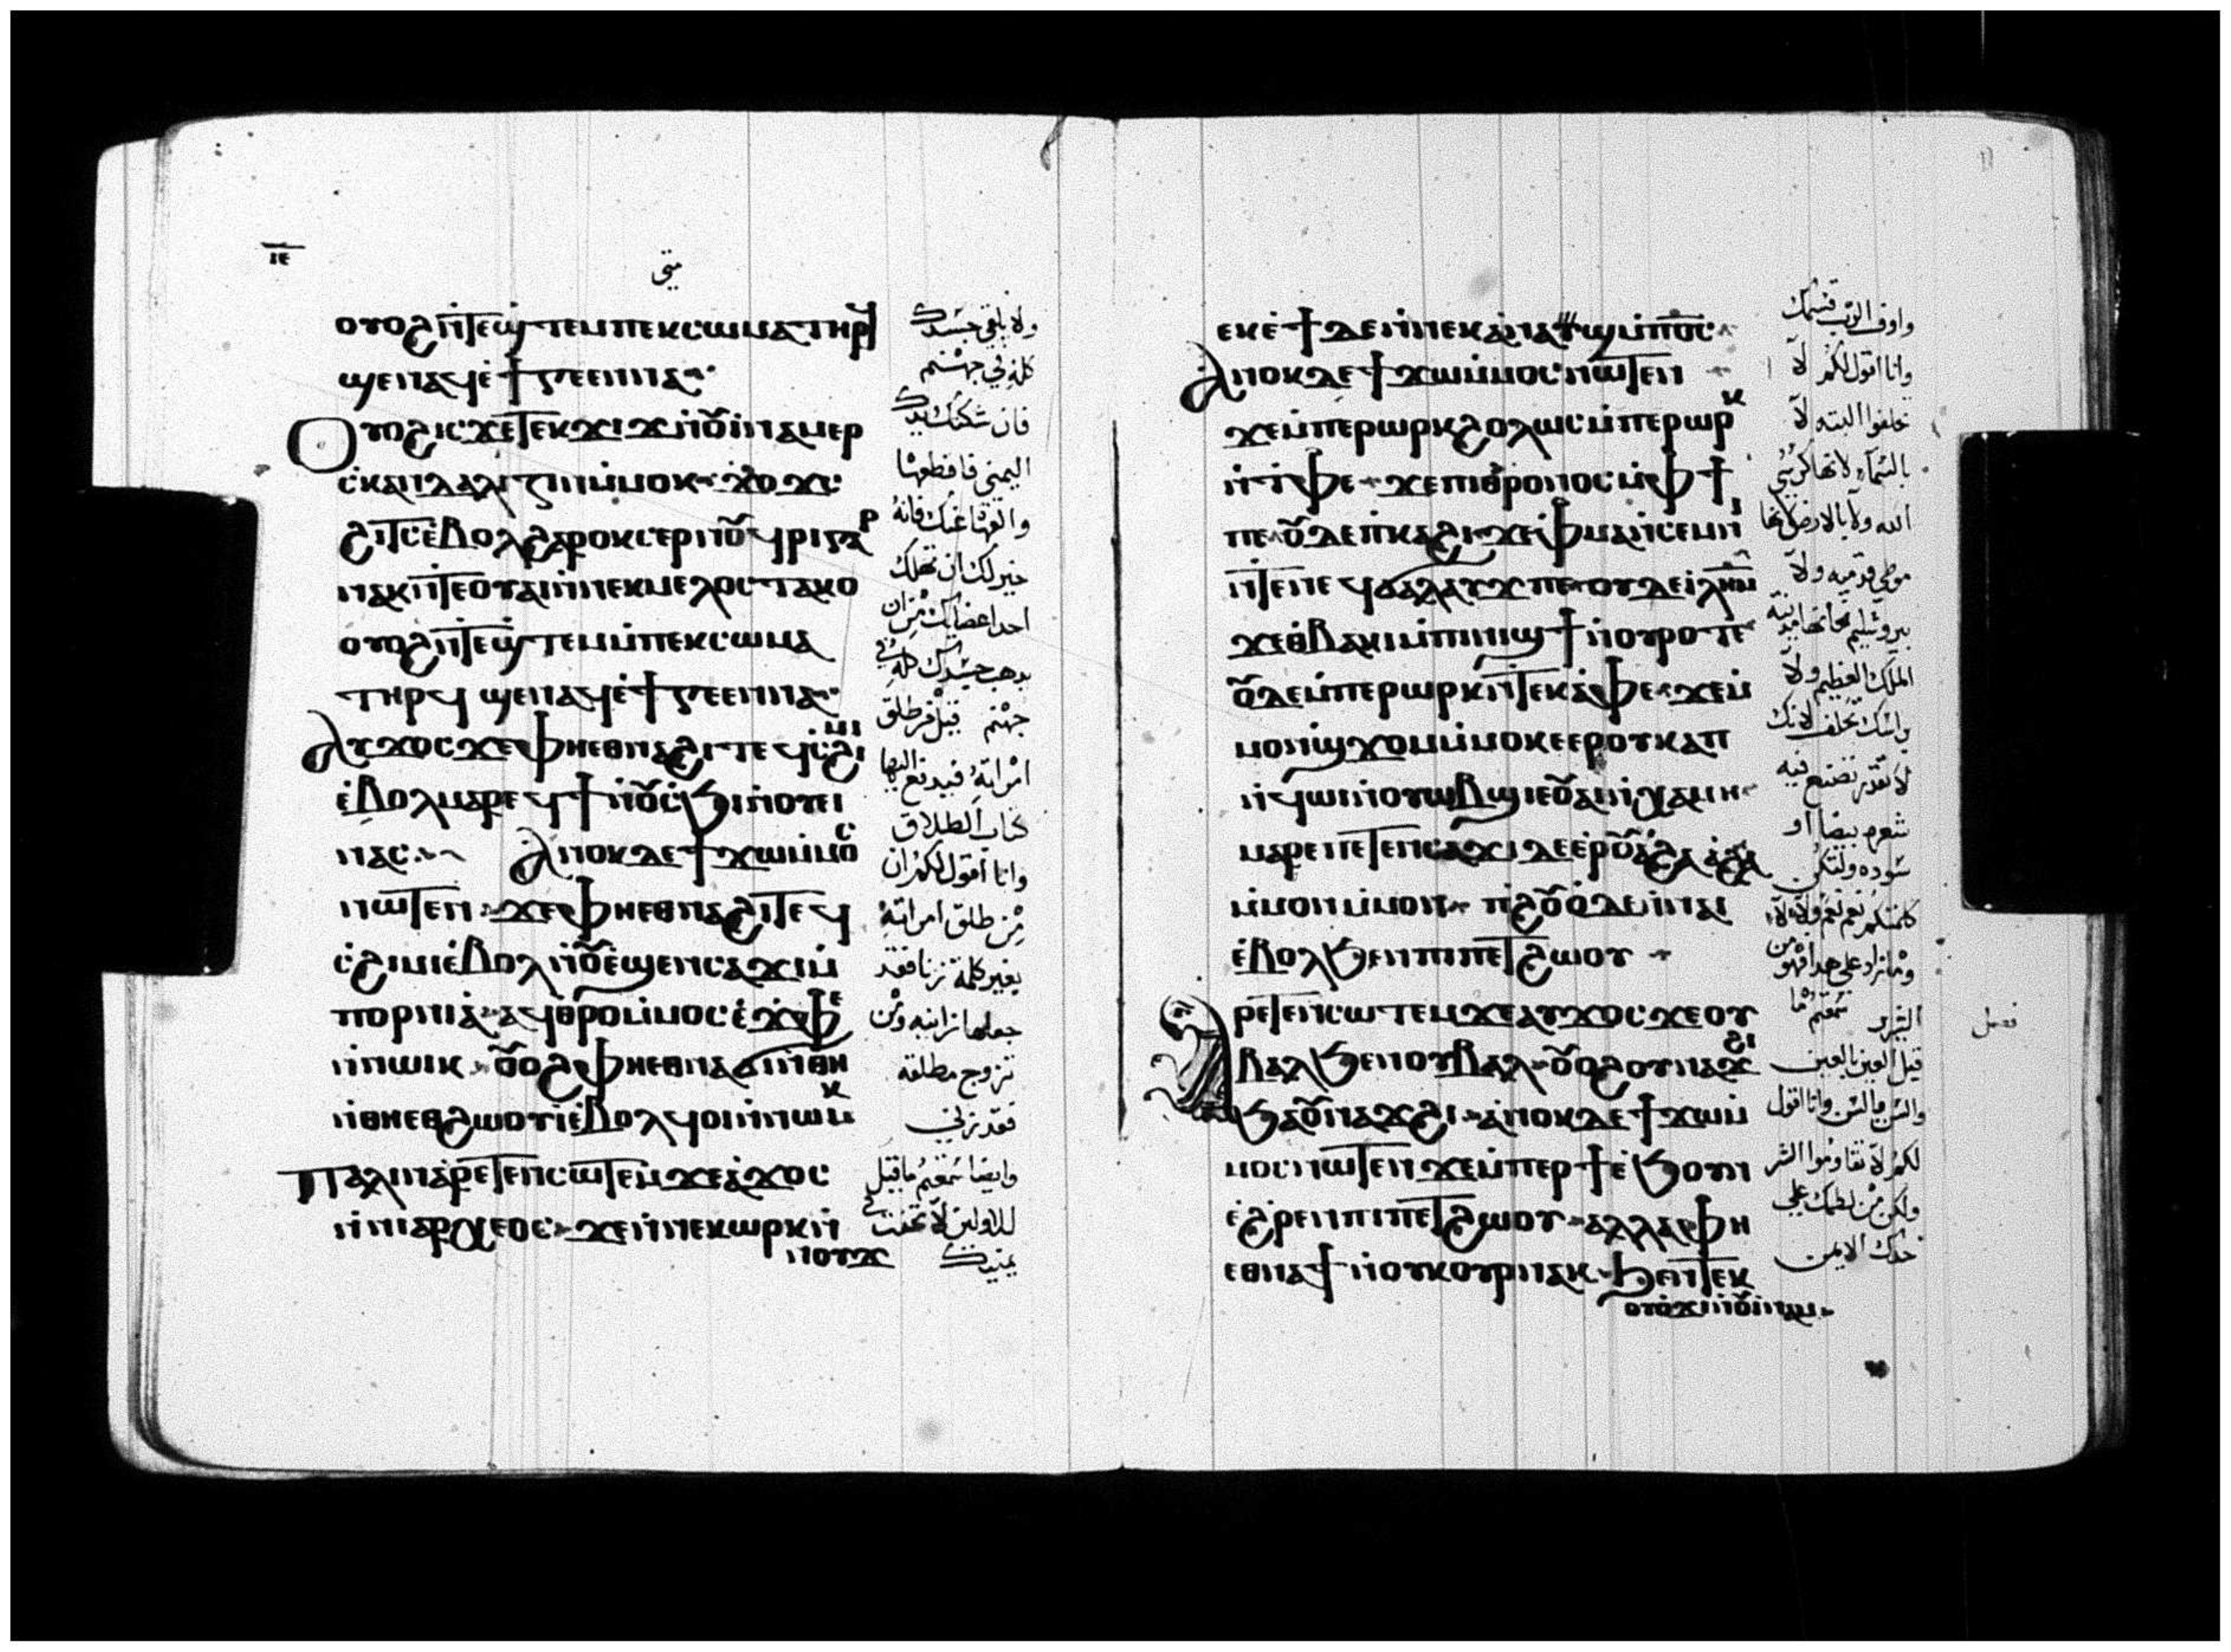 ⲓⲉ
متى
ⲟⲩⲟϩ ⲛ̀ⲧⲉϣⲧⲉⲙ ⲡⲉⲕⲥⲱⲙⲁ ⲧⲏⲣϥ
ϣⲉⲛⲁϥ ⲉ̀ϯⲅⲉⲉⲛⲛⲁ
ⲟⲩⲟϩ ⲓⲥϫⲉ ⲧⲉⲕϫⲓϫ ⲛ̀ⲟⲩⲓⲛⲁⲙ ⲉⲣ
ⲥⲕⲁⲛⲇⲁⲗⲓⲍⲓⲛ ⲙ̀ⲙⲟⲕ ϫⲟϫⲥ
ϩⲓⲧⲥ ⲉ̀ⲃⲟⲗ ϩⲁⲣⲟⲕ ⲥⲉⲣⲛⲟⲩϥⲣⲓ ⲅⲁⲣ
ⲛⲁⲕ ⲛ̀ⲧⲉ ⲟⲩⲁⲓ ⲛ̀ⲛⲉⲕⲙⲉⲗⲟⲥ ⲧⲁⲕⲟ
ⲟⲩⲟϩ ⲛ̀ⲧⲉϣⲧⲉⲙ ⲙ̀ⲡⲉⲕⲥⲱⲙⲁ
ⲧⲏⲣϥ ϣⲉⲛⲁϥ ⲉ̀ϯⲅⲉⲉⲛⲛⲁ
ⲁⲩϫⲟⲥ ϫⲉ ⲫⲏⲉⲑⲛⲁϩⲓ ⲧⲉϥⲥϩⲓⲙⲓ
ⲉ̀ⲃⲟⲗ ⲙⲁⲣⲉϥϯ ⲛ̀ⲟⲩⲥ̀ϧⲓ ⲛ̀ⲟⲩⲉⲓ
ⲛⲁⲥ ⲁⲛⲟⲕ ⲇⲉ ϯϫⲱ ⲙ̀ⲙⲟⲥ
ⲛⲱⲧⲉⲛ ϫⲉ ⲫⲏⲉⲑⲛⲁϩⲓ ⲧⲉϥ
ⲥϩⲓⲙⲓ ⲉ̀ⲃⲟⲗ ⲛ̀ⲟⲩⲉϣⲉⲛ ⲥⲁϫⲓ ⲙ̀
ⲡⲟⲣⲛⲓⲁ ⲁϥⲑⲣⲟ ⲙ̀ⲙⲟⲥ ⲉ̀ϫⲫⲉ
ⲛ̀ⲛⲱⲓⲕ ⲟⲩⲟϩ ⲫⲏⲉⲑⲛⲁϭⲓ ⲛ̀ⲑⲏ
ⲛ̀ⲑⲏⲉⲧϩⲱⲟⲩⲓ ⲉ̀ⲃⲟⲗ ϥⲟⲓ ⲛ̀ⲛⲱⲓⲕ
ⲡⲁⲗⲓⲛ ⲁⲣⲉⲧⲉⲛⲥⲱⲧⲉⲙ ϫⲉ ⲁ̀ϫⲟⲥ
ⲛ̀ⲛⲓⲁⲣⲭⲉⲟⲥ ϫⲉ ⲛ̀ⲛⲉⲕⲱⲣⲕ ⲛ̀
ⲛⲟⲩϫ
ولا يلقى جسدك
كله في جهنم
فان شككتك يدك
اليمنى فاقطعها
والقها عنك فانه
خير لك ان تهلك
احد اعضائك من ان
يذهب جسدك كله في
جهنم قيل من طلق
امراته فيدفع اليها
كتاب الطلاق
وانا اقول لكم ان
من طلق امراته
بغير كلمة زنا فقد
جعلها زانيه ومن
تزوج مطلقه
فقد زنى
وايضا سمعتم ما قيل
للاولين لا تحنث في
يمينك
ⲉⲕⲉ̀ϯ ⲇⲉ ⲛ̀ⲛⲉⲕⲁ̀ⲛⲁⲩϣ ⲙ̀ⲡϭⲥ
ⲁⲛⲟⲕ ⲇⲉ ϯϫⲱ ⲙ̀ⲙⲟⲥ ⲛⲱⲧⲉⲛ
ϫⲉ ⲙ̀ⲡⲉⲣⲱⲣⲕ ϩⲟⲗⲱⲥ ⲙ̀ⲡⲉⲣⲱⲣⲕ
ⲛ̀ⲧ̀ⲫⲉ ϫⲉ ⲡⲓⲑⲣⲟⲛⲟⲥ ⲙ̀ⲫϯ
ⲡⲉ ⲟⲩⲇⲉ ⲡ̀ⲕⲁϩⲓ ϫⲉ ⲫⲙⲁⲛⲥⲉⲙⲛⲓ
ⲛ̀ⲧⲉ ⲛⲉϥϭⲁⲗⲁⲩϫ ⲡⲉ ⲟⲩⲇⲉ ⲓⲗⲏⲙ
ϫⲉ ⲑⲃⲁⲕⲓ ⲙ̀ⲡⲓⲛⲓϣϯ ⲛ̀ⲟⲩⲣⲟ ⲧⲉ
ⲟⲩⲇⲉ ⲙ̀ⲡⲉⲣⲱⲣⲕ ⲛ̀ⲧⲉⲕⲁ̀ⲫⲉ ϫⲉ ⲙ̀
ⲙⲟⲛ ϣϫⲟⲙ ⲙ̀ⲙⲟⲕ ⲉⲉⲣ ⲟⲩⲕⲁⲡ
ⲛ̀ϥⲱⲓ ⲛ̀ⲟⲩⲱⲃϣ ⲓⲉ ⲟⲩⲁⲓ ⲛ̀ⲭⲁⲙⲏ
ⲙⲁⲣⲉ ⲡⲉⲧⲉⲛⲥⲁϫⲓ ⲇⲉ ⲉⲣⲟⲩⲁ̀ϩⲁ ⲁ̀ϩⲁ
ⲙ̀ⲙⲟⲛ ⲙ̀ⲙⲟⲛ ⲡϩⲟⲩⲟ̀ ⲇⲉ ⲛ̀ⲛⲁⲓ
ⲉ̀ⲃⲟⲗ ϧⲉⲛ ⲡⲓⲡⲉⲧϩⲱⲟⲩ
ⲁⲣⲉⲧⲉⲛⲥⲱⲧⲉⲙ ϫⲉ ⲁⲩϫⲟⲥ ϫⲉ ⲟⲩ
ⲃⲁⲗ ϧⲉⲛ ⲟⲩⲃⲁⲗ ⲟⲩⲟϩ ⲟⲩⲛⲁϫϩⲓ
ϧⲁ ⲟⲩⲛⲁϫϩⲓ ⲁⲛⲟⲕ ⲇⲉ ϯϫⲱ ⲙ̀
ⲙⲟⲥ ⲛⲱⲧⲉⲛ ϫⲉ ⲙ̀ⲡⲉⲣϯ ⲉ̀ϧⲟⲩⲛ
ⲉϩⲣⲉⲛ ⲡⲓⲡⲉⲧϩⲱⲟⲩ ⲁⲗⲗⲁ ⲫⲏ
ⲉⲑⲛⲁϯ ⲛ̀ⲟⲩⲕⲟⲩⲣ ⲛⲁⲕ ϧⲉⲛ ⲧⲉⲕ
ⲟⲩⲟϫⲓ ⲛ̀ⲟⲩⲓⲛⲁⲙ
واوف الرب قسمك
وانا اقول لكم لا
تحلفوا البته لا
بالسماء لانها كرسي
الله ولا بالارض لانها
موطى قدميه ولا
بيروشليم فانها مدينة
الملك العظيم ولا
براسك تحلف لانك
لا تقدر تصنع فيه
شعره بيضا او
سوده ولتكن
كلمتكم نعم نعم ولا لا
وما زاد على هذا فهو من
الشرير سمعتم ما
قيل العين بالعين
والسن بالسن وانا اقول
لكم لا تقاوموا الشر
ولكن من لطمك على
خدك الايمن
فصل